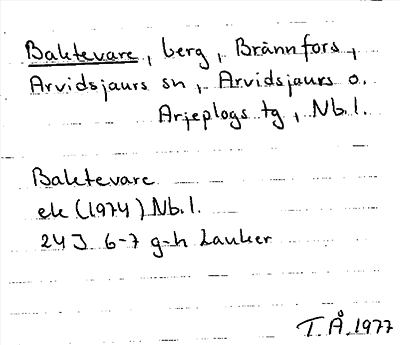 Baktevare, berg, Brännfors,
Arvidsjaurs sn, Arvidsjaurs o.
Arjeplogs tg, Nb.l.
Baktevare
ek (1974) Nb.l.
24J 6-7 g-h Lauker
T.Å. 1977